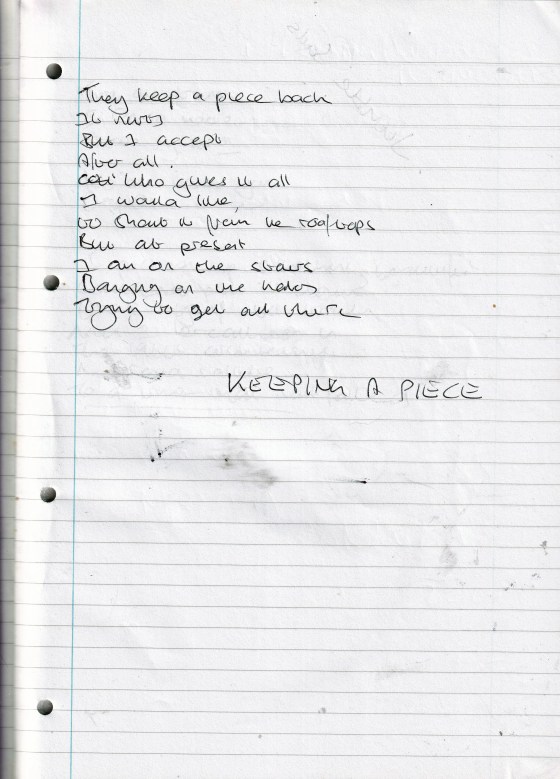 They keep a piece back
It hurts
But I accept
After all.
Who gives it all
I would like,
to shout it from the rooftops
But at present
I am on the stairs
Banging on the
Trying to get out there
KEEPING A PIECE